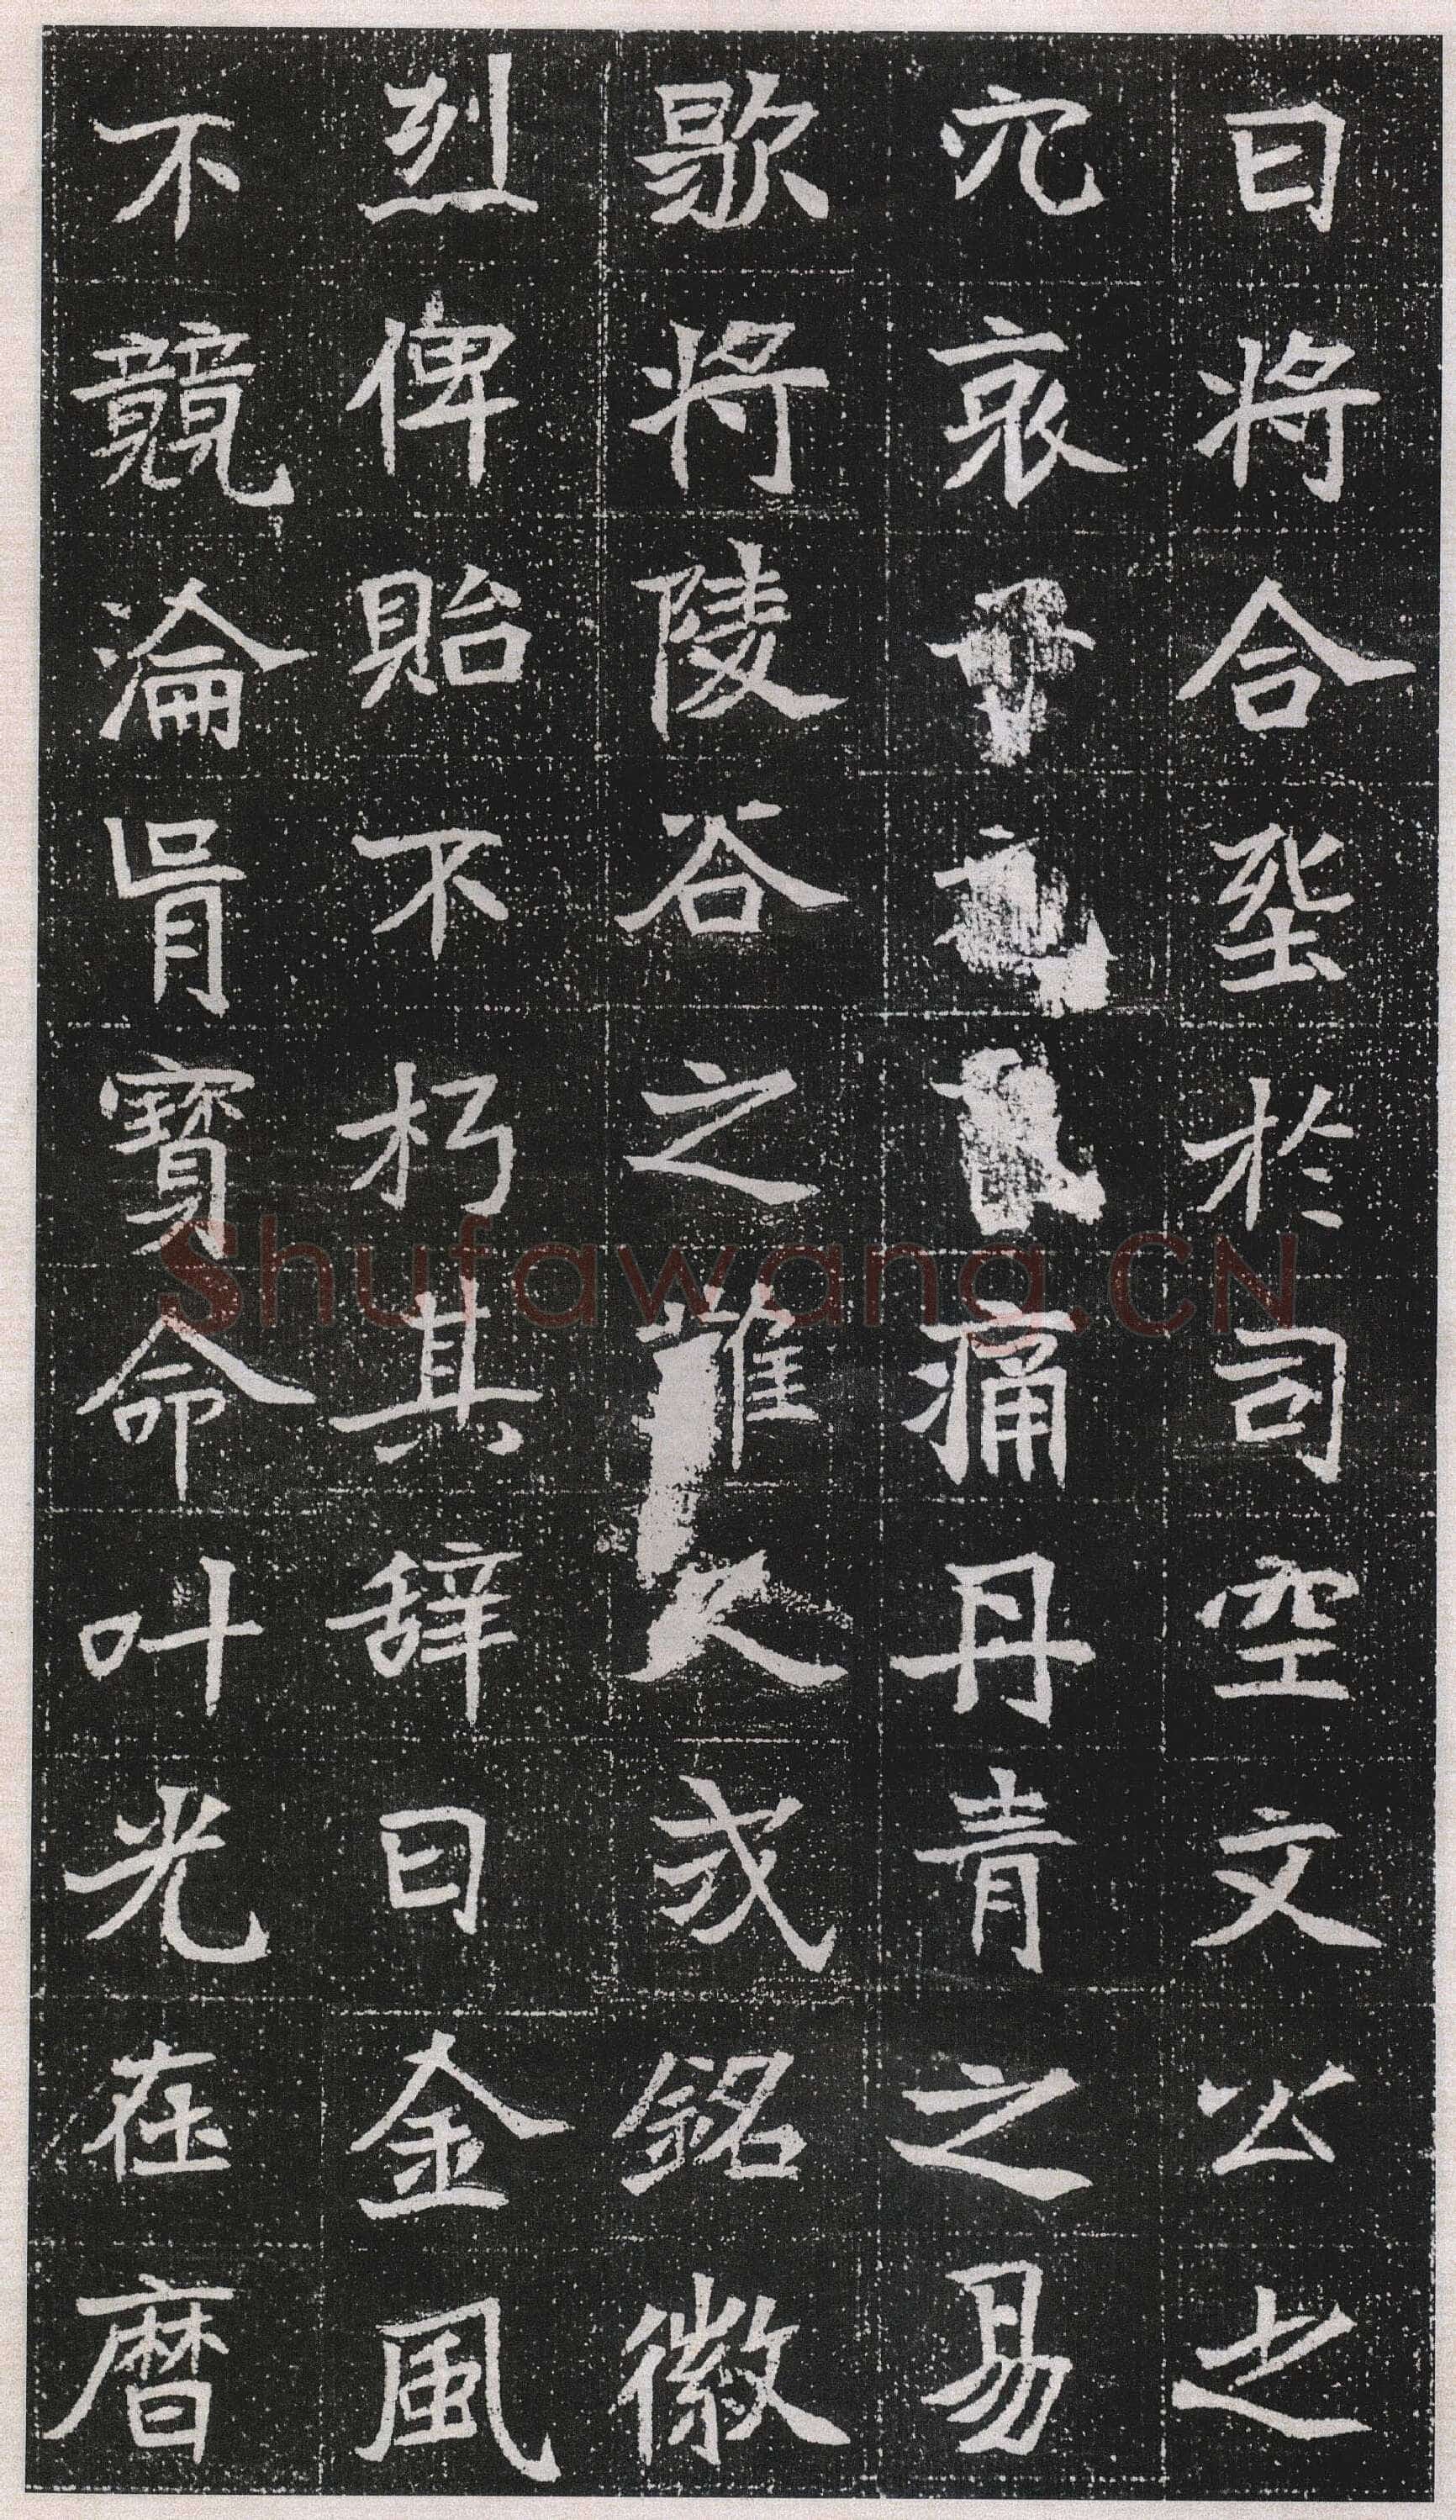 日将合㘯於司空文公之
穴哀痛丹青之易
歇将陵谷之難久或銘徽
烈俾貽不朽其辞曰金風
不競淪胥寶命叶光在暦
Shufawang.CN